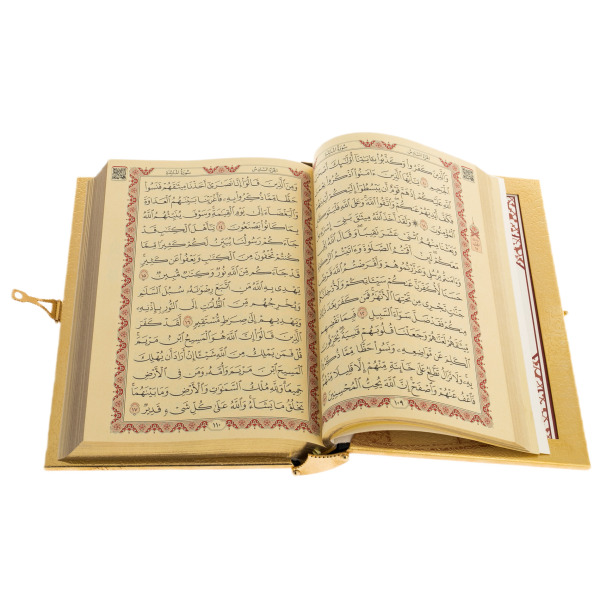 الجزء السادس
سورة المائدة
وَالَّذِينَ كَفَرُوا وَكَذَّبُوا بِآيَاتِنَا أُولَٰئِكَ
الْجَحِيمِ ١٠ يَا أَيُّهَا الَّذِينَ آمَنُوا اذْكُرُوا
عَلَيْكُمْ إِذْ هَمَّ قَوْمٌ أَن يَبْسُطُوا إِلَيْكُمْ
فَكَفَّ أَيْدِيَهُمْ عَنكُمْ وَاتَّقُوا اللَّهَ وَعَلَى اللَّهِ
الْمُؤْمِنُونَ ١١ وَلَقَدْ أَخَذَ اللَّهُ مِيثَاقَ بَنِي
وَبَعَثْنَا مِنْهُمُ اثْنَيْ عَشَرَ نَقِيبًا وَقَالَ اللَّهُ
مَعَكُمْ لَئِنْ أَقَمْتُمُ الصَّلَاةَ وَآتَيْتُمُ
وَآمَنتُم بِرُسُلِي وَعَزَّرْتُمُوهُمْ وَأَقْرَضْتُمُ اللَّهَ
حَسَنًا لَّأُكَفِّرَنَّ عَنكُمْ سَيِّئَاتِكُمْ وَلَأُدْخِلَنَّكُمْ
جَنَّاتٍ تَجْرِي مِن تَحْتِهَا الْأَنْهَارُ فَمَن كَفَرَ بَعْدَ
مِنكُمْ فَقَدْ ضَلَّ سَوَاءَ السَّبِيلِ ١٢ فَبِمَا نَقْضِهِم
مِّيثَاقَهُمْ لَعَنَّاهُمْ وَجَعَلْنَا قُلُوبَهُمْ قَاسِيَةً يُحَرِّفُونَ
الْكَلِمَ عَن مَّوَاضِعِهِ وَنَسُوا حَظًّا مِّمَّا ذُكِّرُوا
بِهِ وَلَا تَزَالُ تَطَّلِعُ عَلَىٰ خَائِنَةٍ مِّنْهُمْ إِلَّا قَلِيلًا مِّنْهُمْ
فَاعْفُ عَنْهُمْ وَاصْفَحْ إِنَّ اللَّهَ يُحِبُّ الْمُحْسِنِينَ
١٠٩
الجزء السادس
سورة المائدة
وَمِنَ الَّذِينَ قَالُوا إِنَّا نَصَارَىٰ أَخَذْنَا مِيثَاقَهُمْ فَنَسُوا
حَظًّا مِّمَّا ذُكِّرُوا بِهِ فَأَغْرَيْنَا بَيْنَهُمُ الْعَدَاوَةَ
وَالْبَغْضَاءَ إِلَىٰ يَوْمِ الْقِيَامَةِ وَسَوْفَ يُنَبِّئُهُمُ اللَّهُ
بِمَا كَانُوا يَصْنَعُونَ ١٤ يَا أَهْلَ الْكِتَابِ قَدْ
جَاءَكُمْ رَسُولُنَا يُبَيِّنُ لَكُمْ كَثِيرًا مِّمَّا
كُنتُمْ تُخْفُونَ مِنَ الْكِتَابِ وَيَعْفُو عَن كَثِيرٍ
قَدْ جَاءَكُم مِّنَ اللَّهِ نُورٌ وَكِتَابٌ مُّبِينٌ ١٥
يَهْدِي بِهِ اللَّهُ مَنِ اتَّبَعَ رِضْوَانَهُ سُبُلَ السَّلَامِ
وَيُخْرِجُهُم مِّنَ الظُّلُمَاتِ إِلَى النُّورِ بِإِذْنِهِ
وَيَهْدِيهِمْ إِلَىٰ صِرَاطٍ مُّسْتَقِيمٍ ١٦ لَّقَدْ كَفَرَ
الَّذِينَ قَالُوا إِنَّ اللَّهَ هُوَ الْمَسِيحُ ابْنُ مَرْيَمَ
قُلْ فَمَن يَمْلِكُ مِنَ اللَّهِ شَيْئًا إِنْ أَرَادَ أَن يُهْلِكَ
الْمَسِيحَ ابْنَ مَرْيَمَ وَأُمَّهُ وَمَن فِي الْأَرْضِ
جَمِيعًا وَلِلَّهِ مُلْكُ السَّمَاوَاتِ وَالْأَرْضِ وَمَا بَيْنَهُمَا
يَخْلُقُ مَا يَشَاءُ وَاللَّهُ عَلَىٰ كُلِّ شَيْءٍ قَدِيرٌ ١٧
١١٠